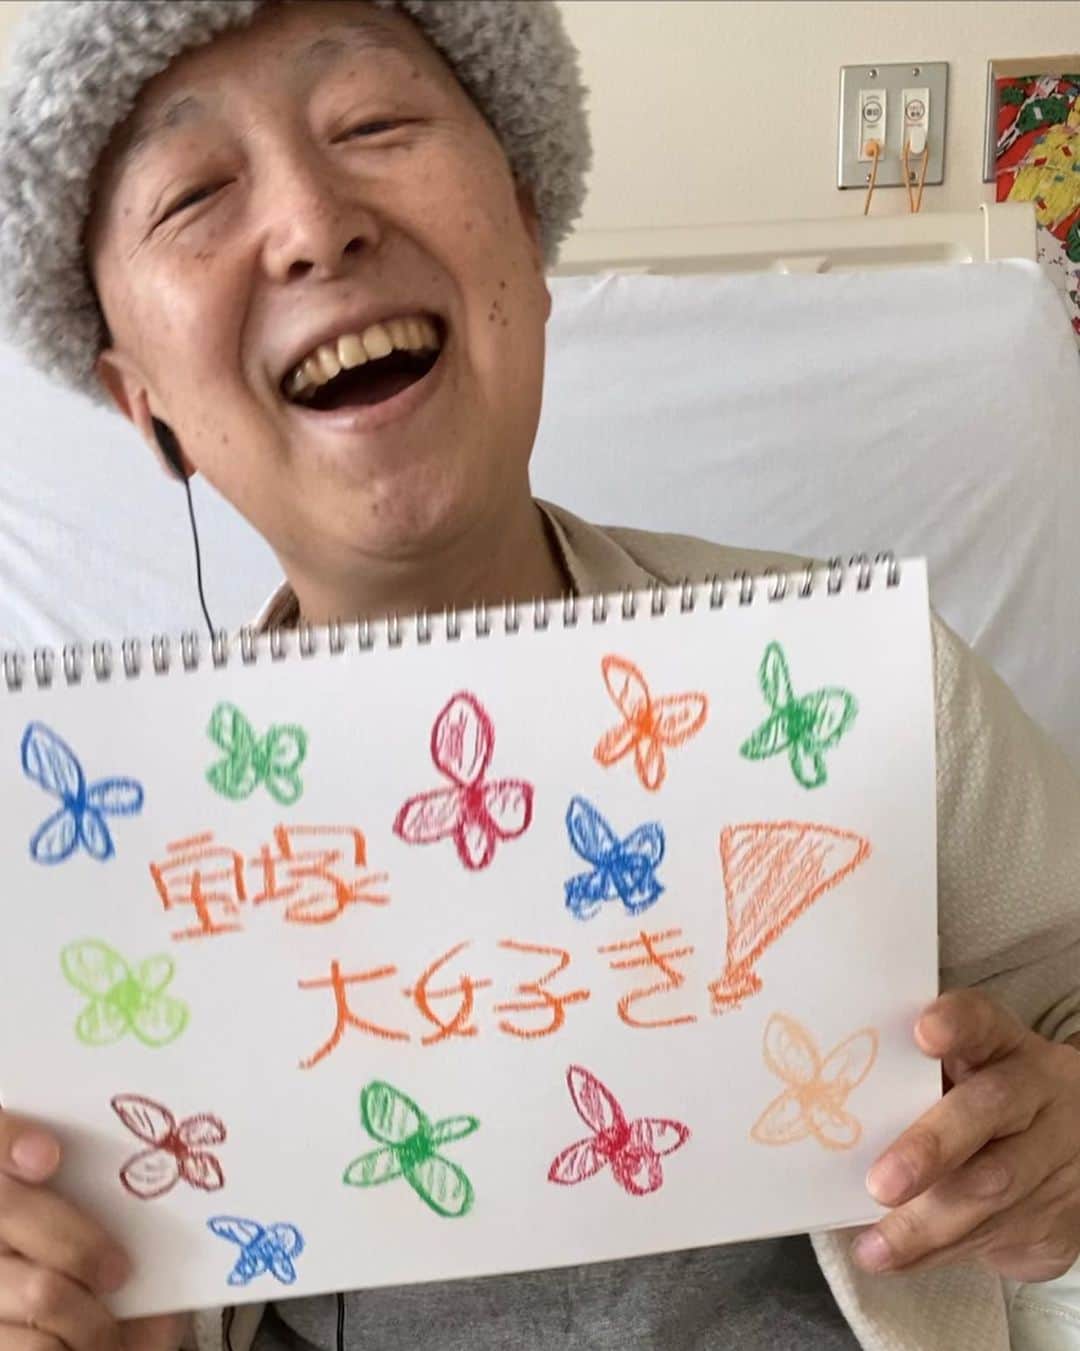 宝塚
大好き!